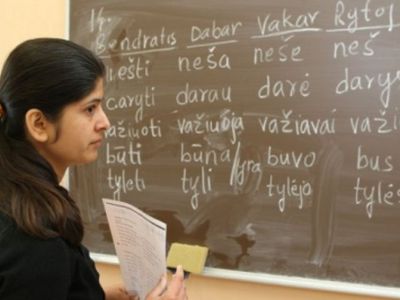 Bendratis Dabar Vakar Rytoj
nešti neša nešė neš
daryti darau darė darys
važiuoti važiuoja važiavai važi
būti būna/yra buvo bus
tylėti tyli tylėjo tylės